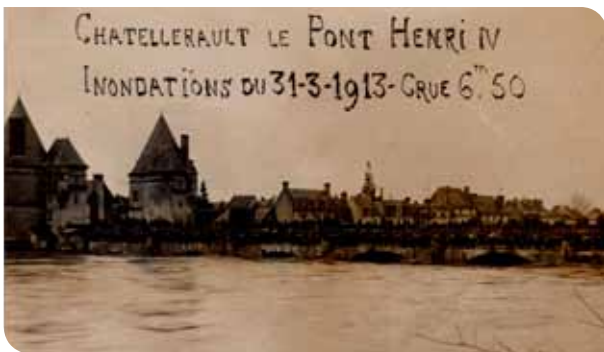 CHATELLERAULT LE PONT HENRI IV
INONDATIONS DU 31-3-1913-CRUE 6m50